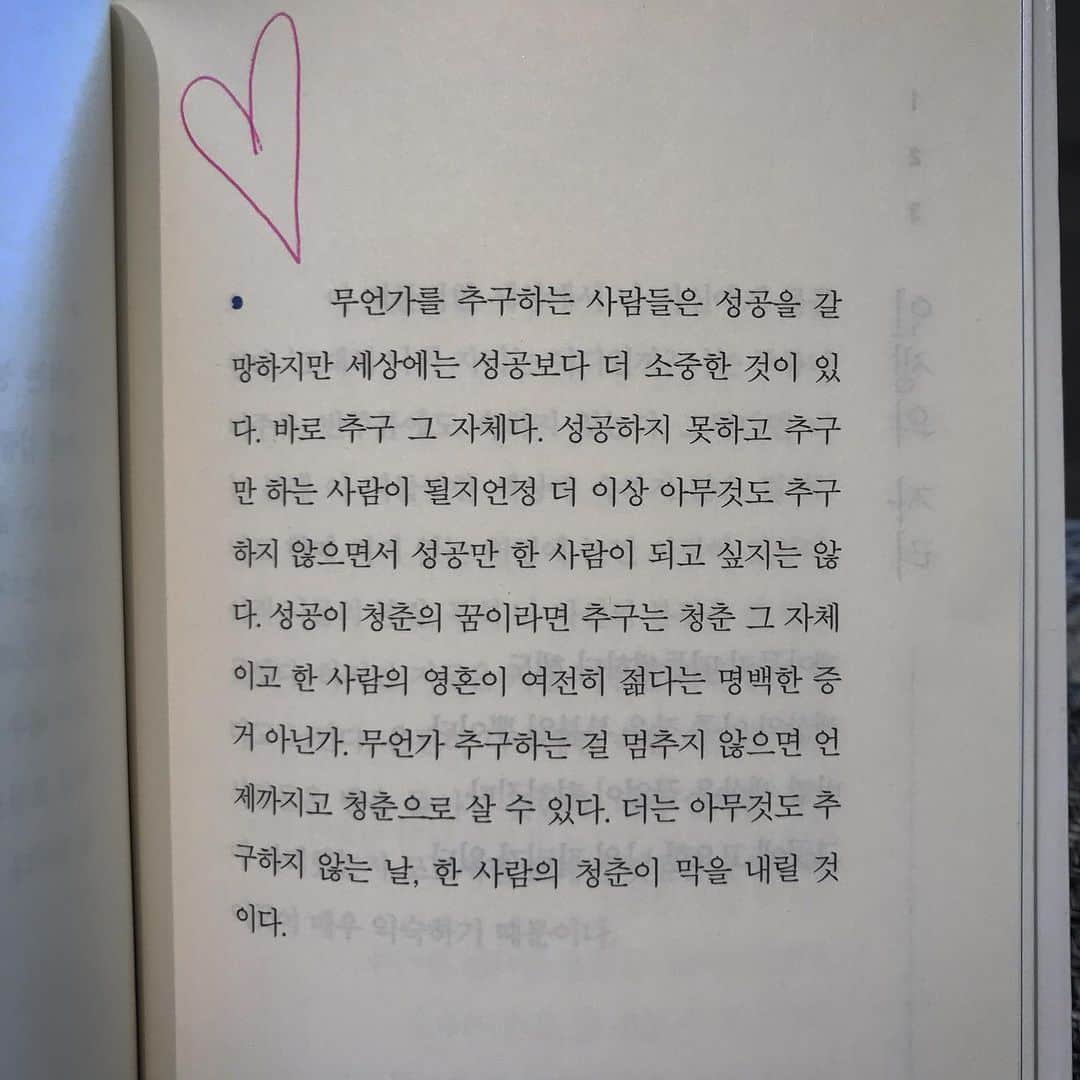 무언가를 추구하는 사람들은 성공을 갈
망하지만 세상에는 성공보다 더 소중한 것이 있
다. 바로 추구 그 자체다. 성공하지 못하고 추구
만 하는 사람이 될지언정 더 이상 아무것도 추구
하지 않으면서 성공만 한 사람이 되고 싶지는 않
다. 성공이 청춘의 꿈이라면 추구는 청춘 그 자체
이고 한 사람의 영혼이 여전히 젊다는 명백한 증
거 아닌가. 무언가 추구하는 걸 멈추지 않으면 언
제까지고 청춘으로 살 수 있다. 더는 아무것도 추
구하지 않는 날, 한 사람의 청춘이 막을 내릴 것
이다.